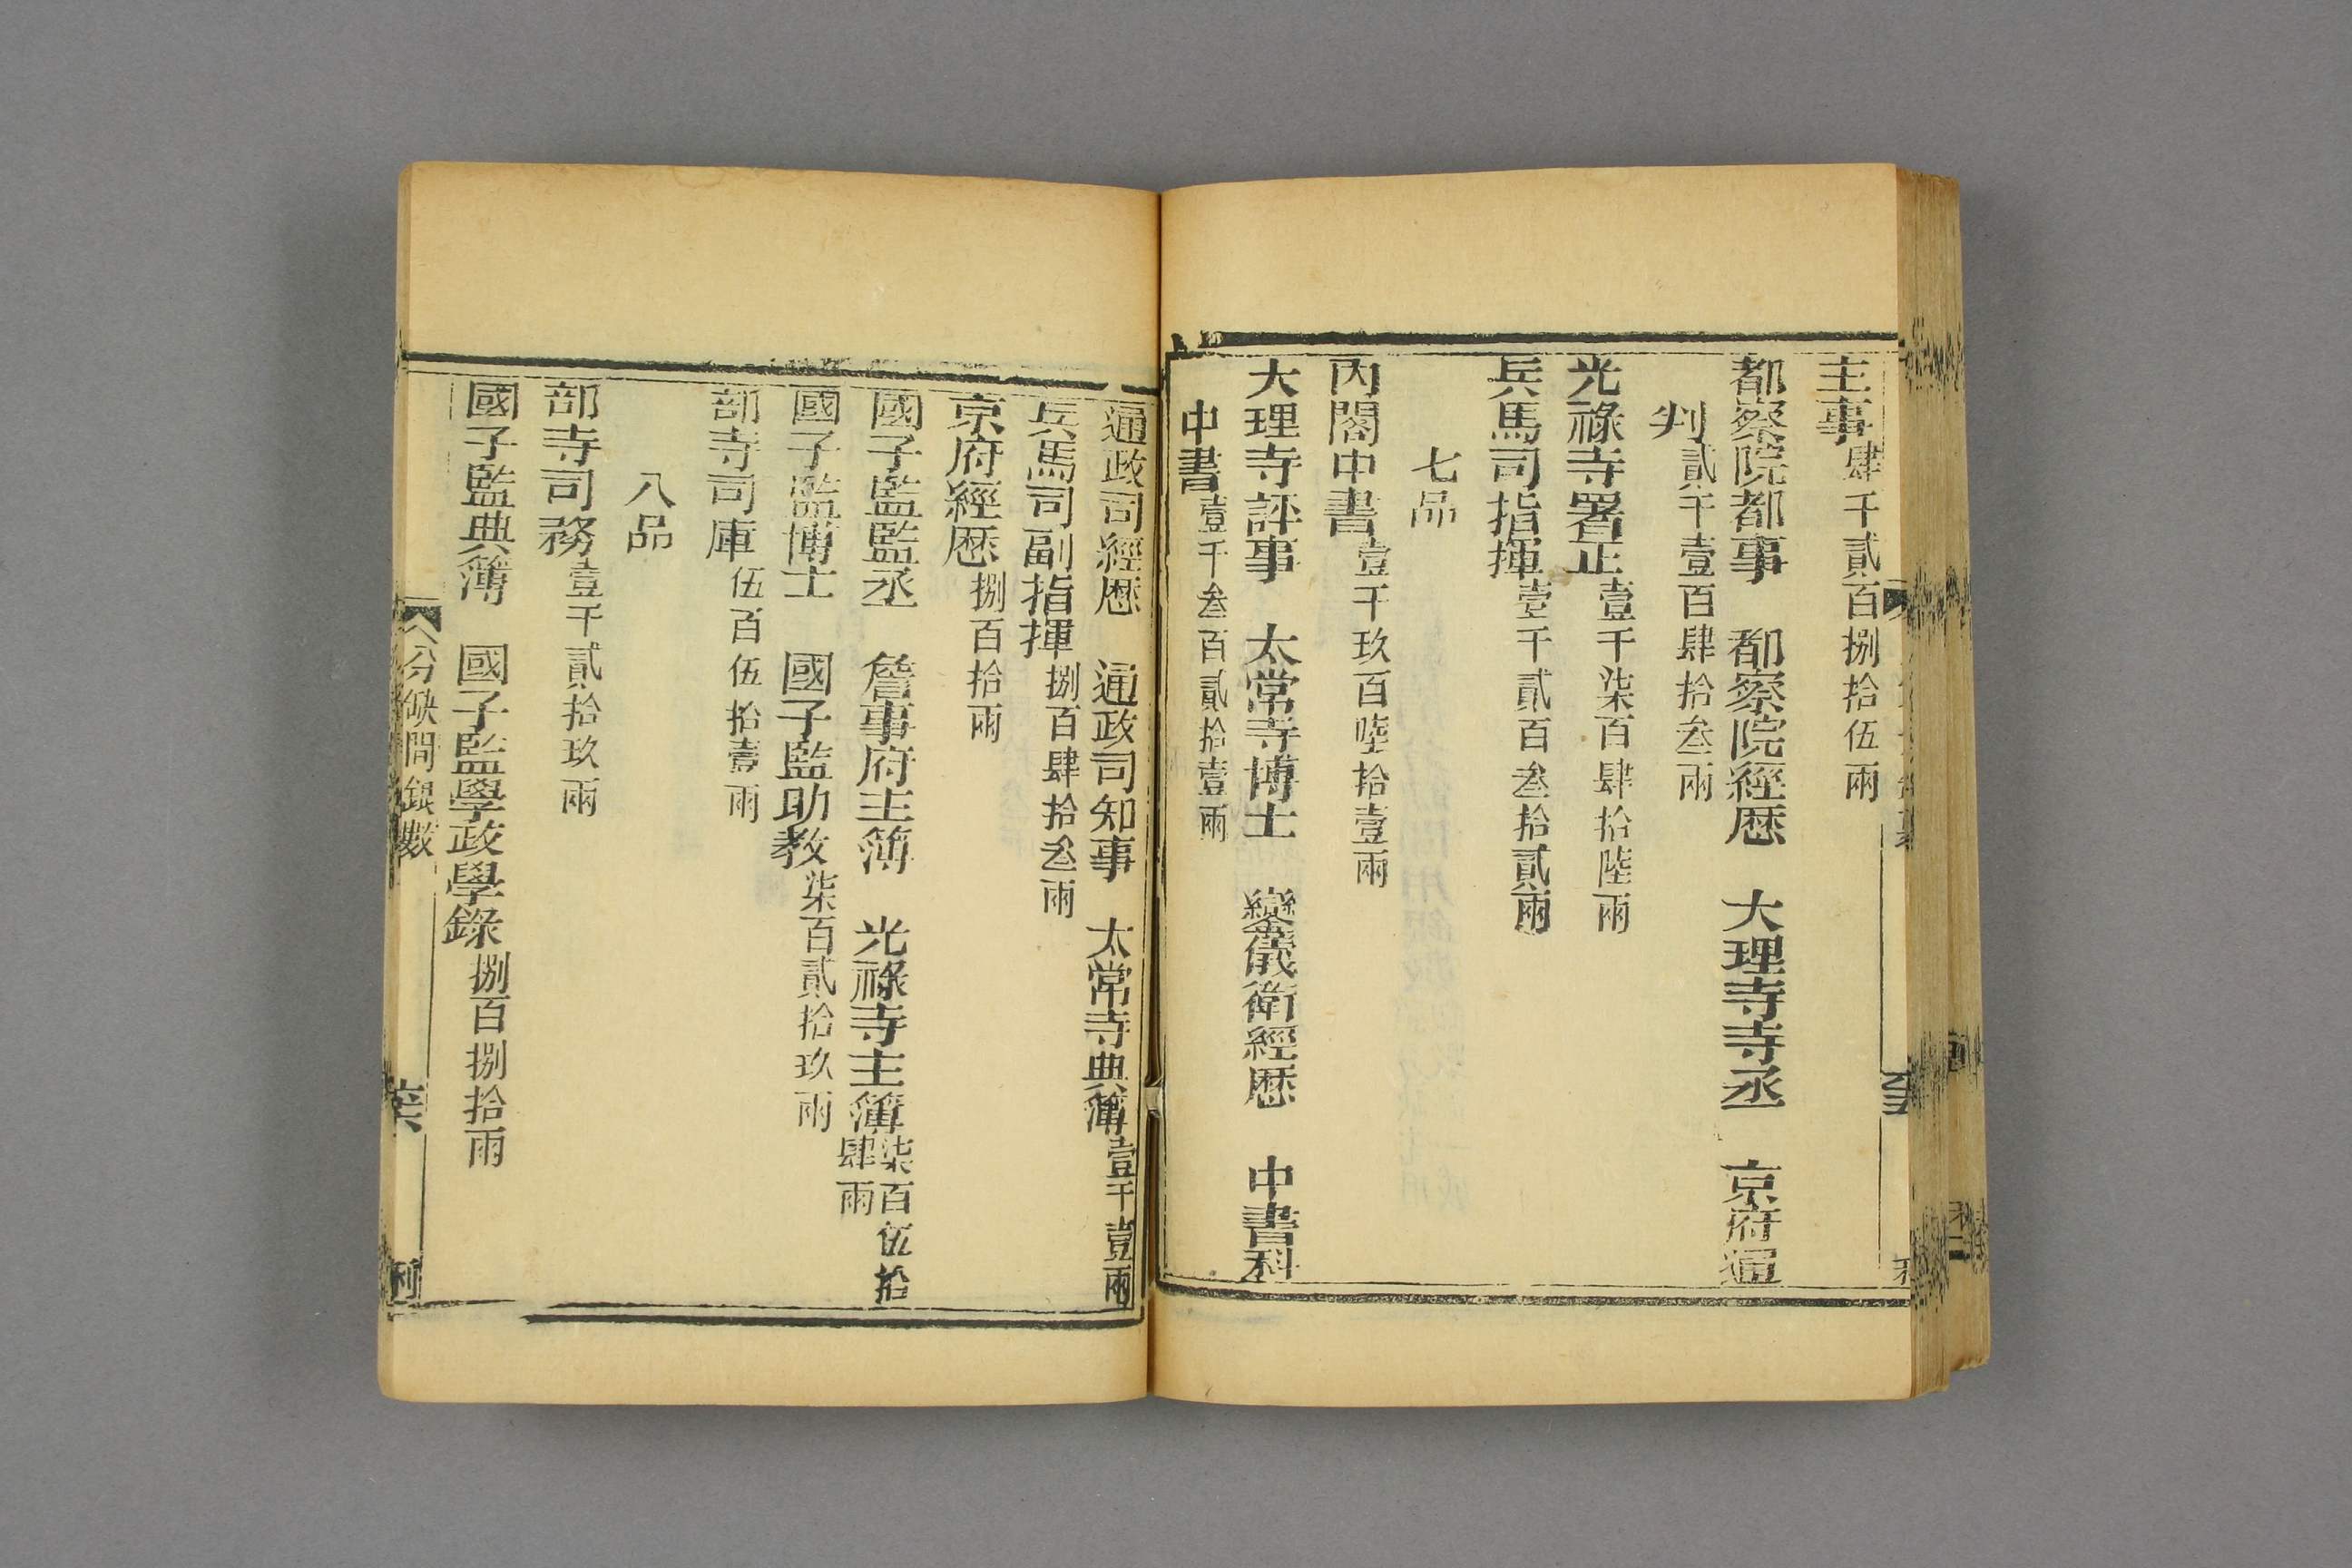 主事肆千貳百捌拾伍兩
都察院都事　都察院經歷　大理寺寺丞　京府通
判貳千壹百肆拾叁兩
光祿寺署正壹千柒百肆拾陸兩
兵馬司指揮壹千貳百叁拾貳兩
七品
內閣中書壹千玖百陸拾壹兩
大理寺評事　太常寺博士　鑾儀衛經歷　中書科
中書壹千叁百貳拾壹兩
通政司經歷　通政司知事　太常寺典簿壹千壹兩
兵馬司副指揮捌百肆拾叁兩
京府經歷捌百拾兩
國子監監丞　詹事府主簿　光祿寺主簿柒百伍拾
肆兩
國子監博士　國子監助教柒百貳拾玖兩
部寺司庫伍百伍拾壹兩
八品
部寺司務壹千貳拾玖兩
國子監典簿　國子監學政學錄捌百捌拾兩
分缺間銀數